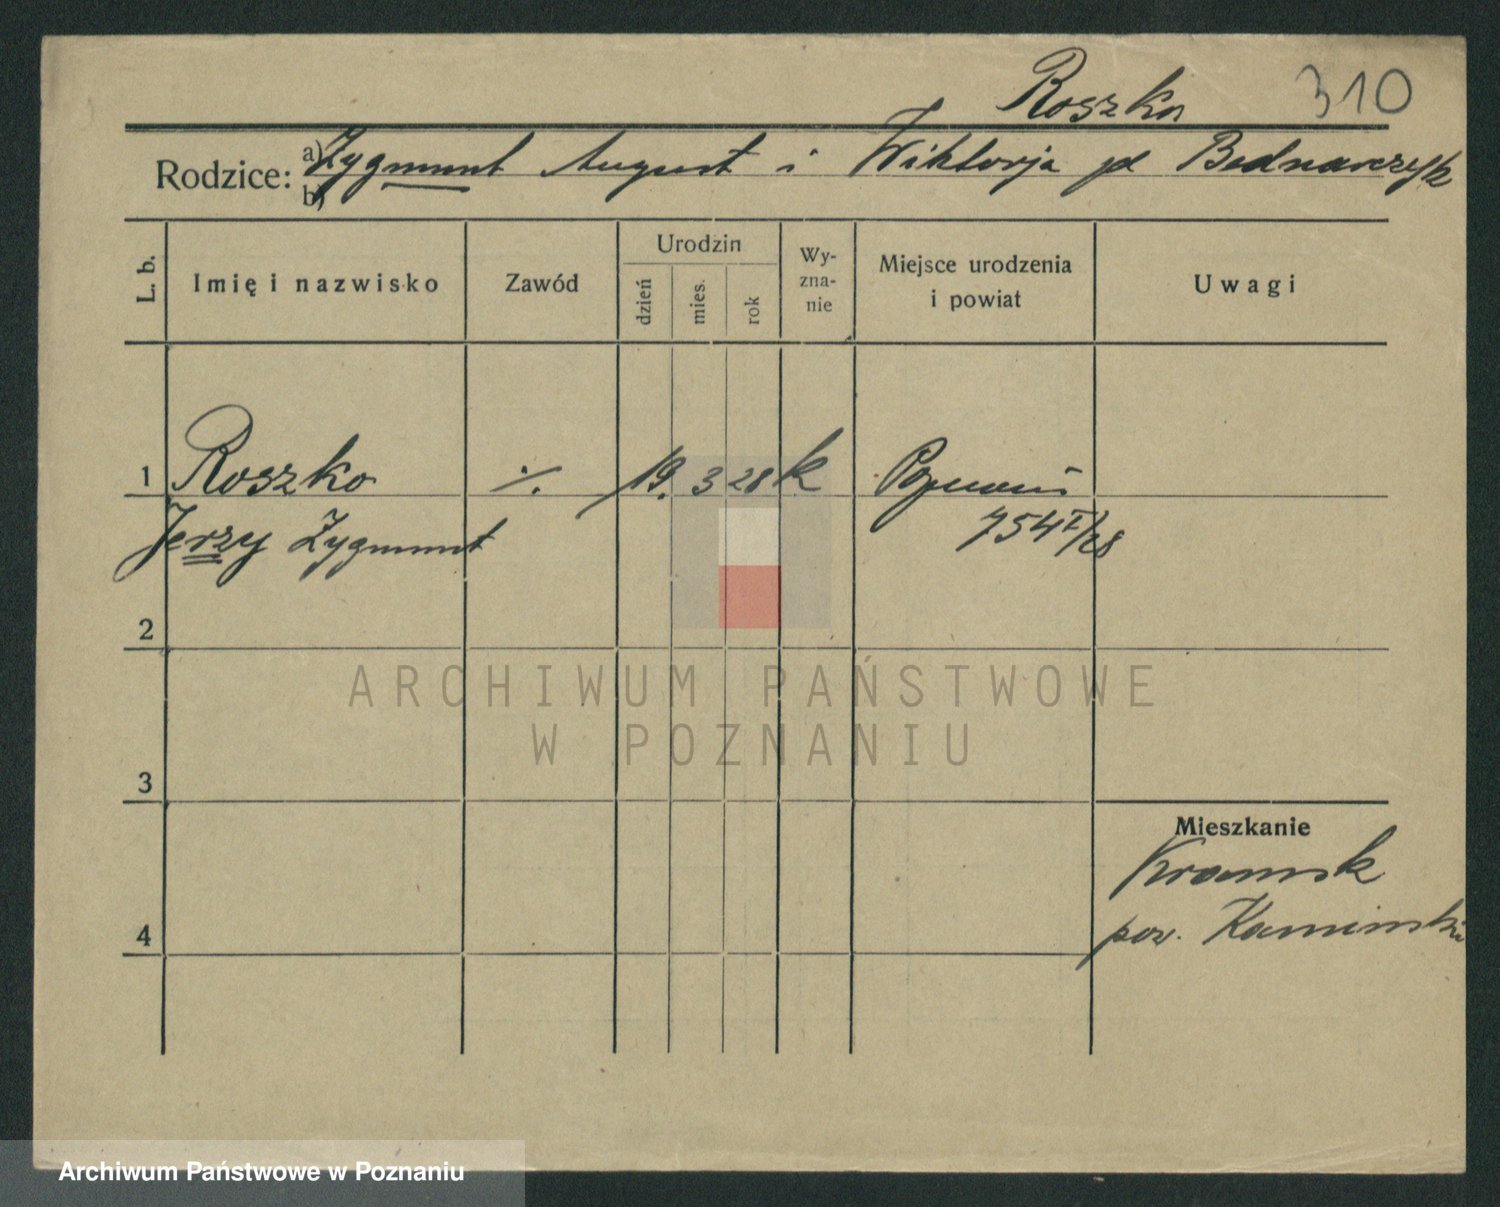 Roszko 310
Rodzice: a) Zygmunt August i Wiktorja zd Bednarczyk
b)
L. b.
Imię i nazwisko
Zawód
Urodzin
dzień
mies.
rok
Wy-
zna-
nie
Miejsce urodzenia
i powiat
Uwagi
1 Roszko ./. 19. 3 28 k Poznań
Jerzy Zygmunt 754 I/28
2
3
4
Mieszkanie
Kramsk
pow. Kaminski
ARCHIWUM PAŃSTWOWE
W POZNANIU
Archiwum Państwowe w Poznaniu